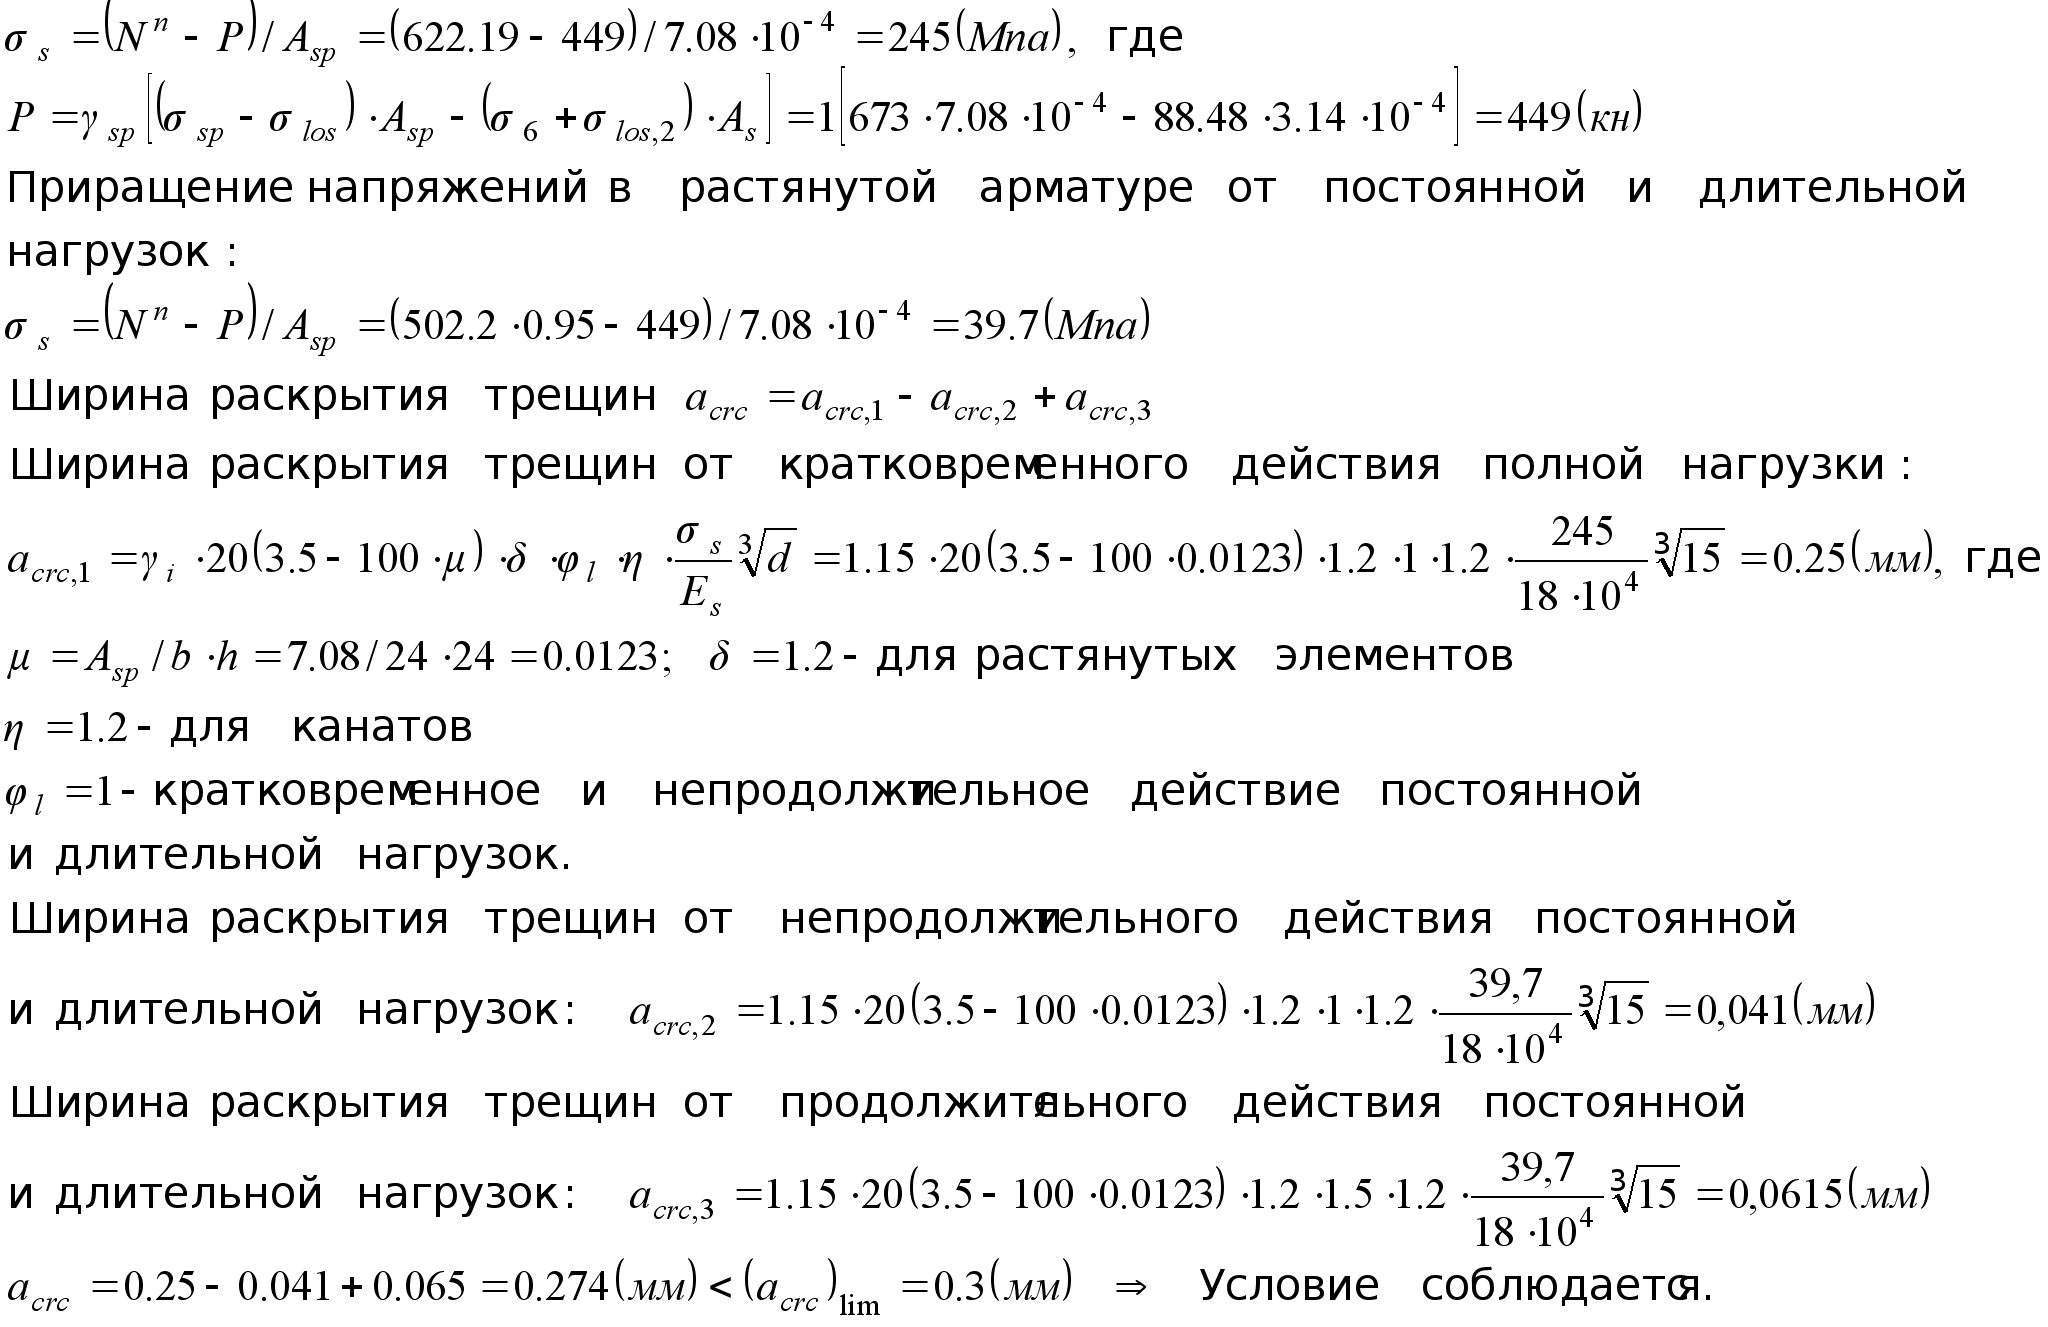 σ s = (N n − P) / A sp = (622.19 − 449) / 7.08 ·10 −4 = 245 (Мпа), где
P = γ sp [(σ sp − σ los) · A sp − (σ 6 + σ los,2) · A s] = 1[673 ·7.08 ·10 −4 − 88.48 ·3.14 ·10 −4] = 449 (кн)
Приращение напряжений в растянутой арматуре от постоянной и длительной
нагрузок :
σ s = (N n − P) / A sp = (502.2 ·0.95 − 449) / 7.08 ·10 −4 = 39.7 (Мпа)
Ширина раскрытия трещин a crc = a crc,1 − a crc,2 + a crc,3
Ширина раскрытия трещин от кратковременного действия полной нагрузки :
a crc,1 = γ i ·20(3.5 − 100 ·μ) ·δ ·φ l ·η · σ s / E s ∛d = 1.15 ·20(3.5 − 100 ·0.0123) ·1.2 ·1 ·1.2 · 245 / 18 ·10 4 ∛15 = 0.25 (мм), где
μ = A sp / b ·h = 7.08 / 24 ·24 = 0.0123; δ = 1.2 − для растянутых элементов
η = 1.2 − для канатов
φ l = 1 − кратковременное и непродолжительное действие постоянной
и длительной нагрузок.
Ширина раскрытия трещин от непродолжительного действия постоянной
и длительной нагрузок: a crc,2 = 1.15 ·20(3.5 − 100 ·0.0123) ·1.2 ·1 ·1.2 · 39,7 / 18 ·10 4 ∛15 = 0,041 (мм)
Ширина раскрытия трещин от продолжительного действия постоянной
и длительной нагрузок: a crc,3 = 1.15 ·20(3.5 − 100 ·0.0123) ·1.2 ·1.5 ·1.2 · 39,7 / 18 ·10 4 ∛15 = 0,0615 (мм)
a crc = 0.25 − 0.041 + 0.065 = 0.274 (мм) < (a crc) lim = 0.3 (мм) ⇒ Условие соблюдается.